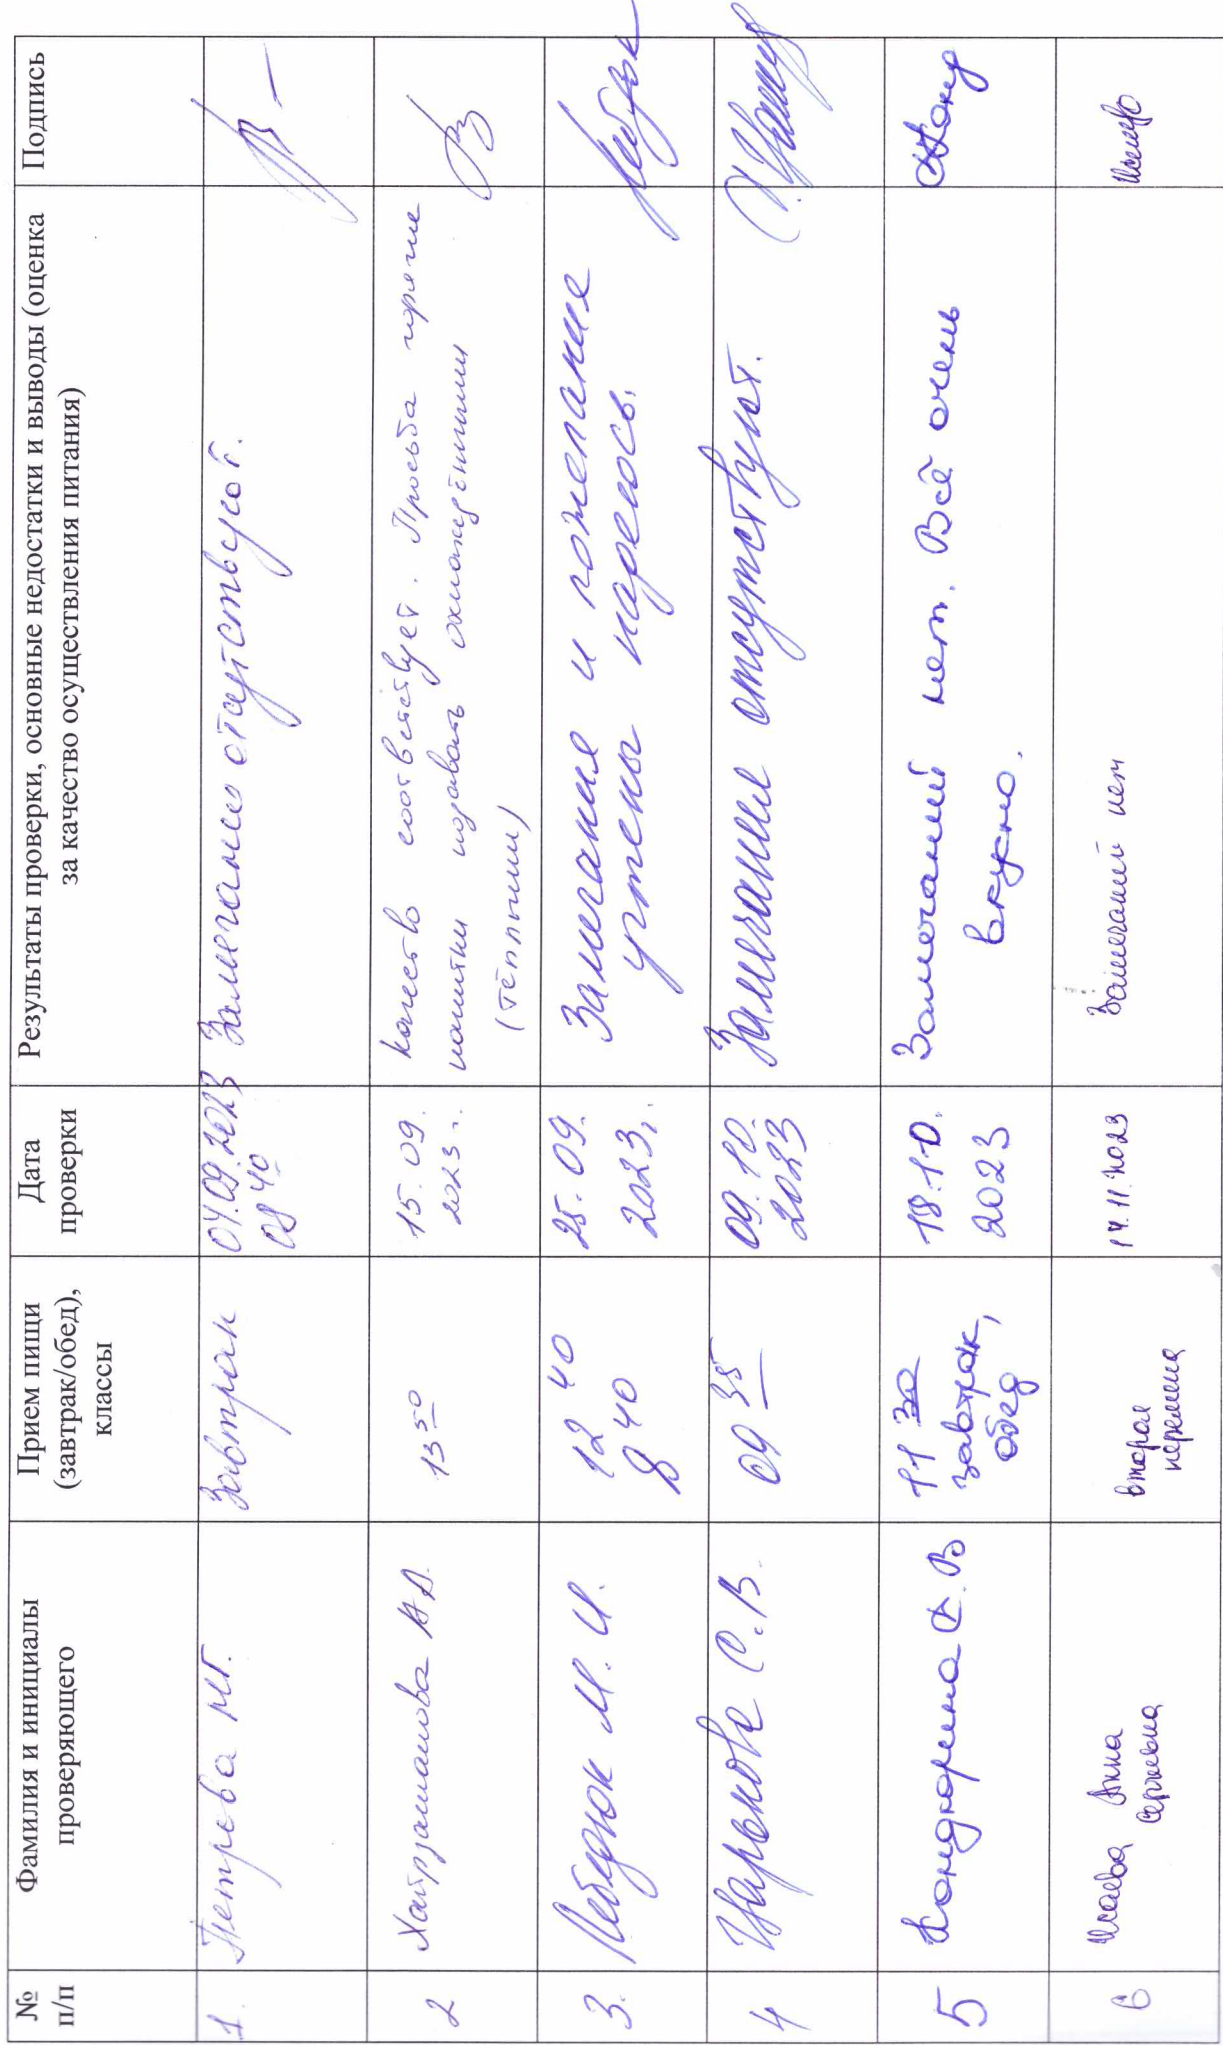 № п/п
Фамилия и инициалы проверяющего
Прием пищи (завтрак/обед), классы
Дата проверки
Результаты проверки, основные недостатки и выводы (оценка за качество осуществления питания)
Подпись
1.
Петрева М.Г.
Завтрак
04.09.2023
08 40
Замечания отсутствуют.
2
Хайрзаманова А.Д.
13 50
15.09.
2023 г.
Качество соответствует. Просьба горячие
напитки подавать охлаждёнными
(тёплыми)
3.
Лебедюк М.И.
12 40
8 40
25.09.
2023 г.
Замечания и пожелание
учтены
4
Царькова С.В.
09 35
09.10.
2023
Замечания отсутствуют.
5
Кондюрина Е.В
11 30
завтрак,
обед
18.10.
2023
Замечаний нет. Всё очень
вкусно.
6
Исаева Анна
Сергеевна
вторая
перемена
14.11.2023
Замечаний нет